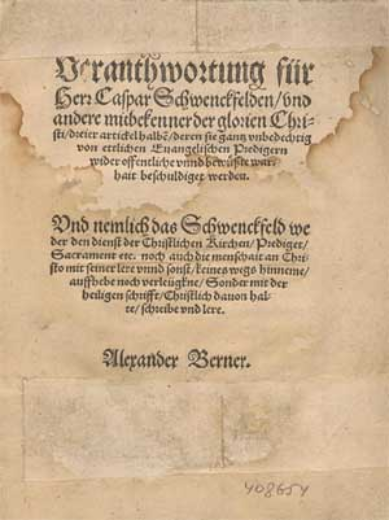 Veranthwortung für
Herr Caspar Schwenckfelden/ vnd
andere mitbekenner der glorien Chri-
sti/ dreier artickel halbẽ/ deren sie gantz vnbedechtig
von ettlichen Euangelischen Predigern
wider offentliche vnnd bewüßte war-
hait beschuldiget werden.
Vnd nemlich das Schwenckfeld we
der den dienst der Christlichen Kirchen/ Prediget/
Sacrament etc. noch auch die menschait an Chri-
sto mit seiner lere vnnd sonst/ keines wegs hinneme/
auffhebe noch verleügkne/ Sonder mit der
heiligen schrifft/ Christlich dauon hal-
te/ schreibe vnd lere.
Alexander Berner.
408654